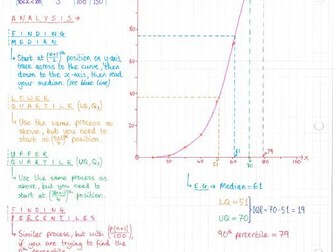 3 100 150
ANALYSIS:
FINDING
MEDIAN
↳ Start at (n+1/2)th position on y axis,
trace across to the curve, then
down to the x-axis, then read
your median (see blue line)
LOWER
QUARTILE (LQ, Q1)
↳ Use the same process as
above, but you need to
start at (n+1/4)th position.
UPPER
QUARTILE (UQ, Q3)
↳ Use the same process as
above, but you need to
start at position.
FINDING
PERCENTILES
Similar process, but with p(n+1)/100,
if you are trying to find the
80
60
40
20
0
10 20 30 40 50 60 70 80 90 100 x
51 61 70 79
↳ E.G → Median = 61
LQ = 51
UQ = 70
IQR = 70 - 51 = 19
90th percentile = 79